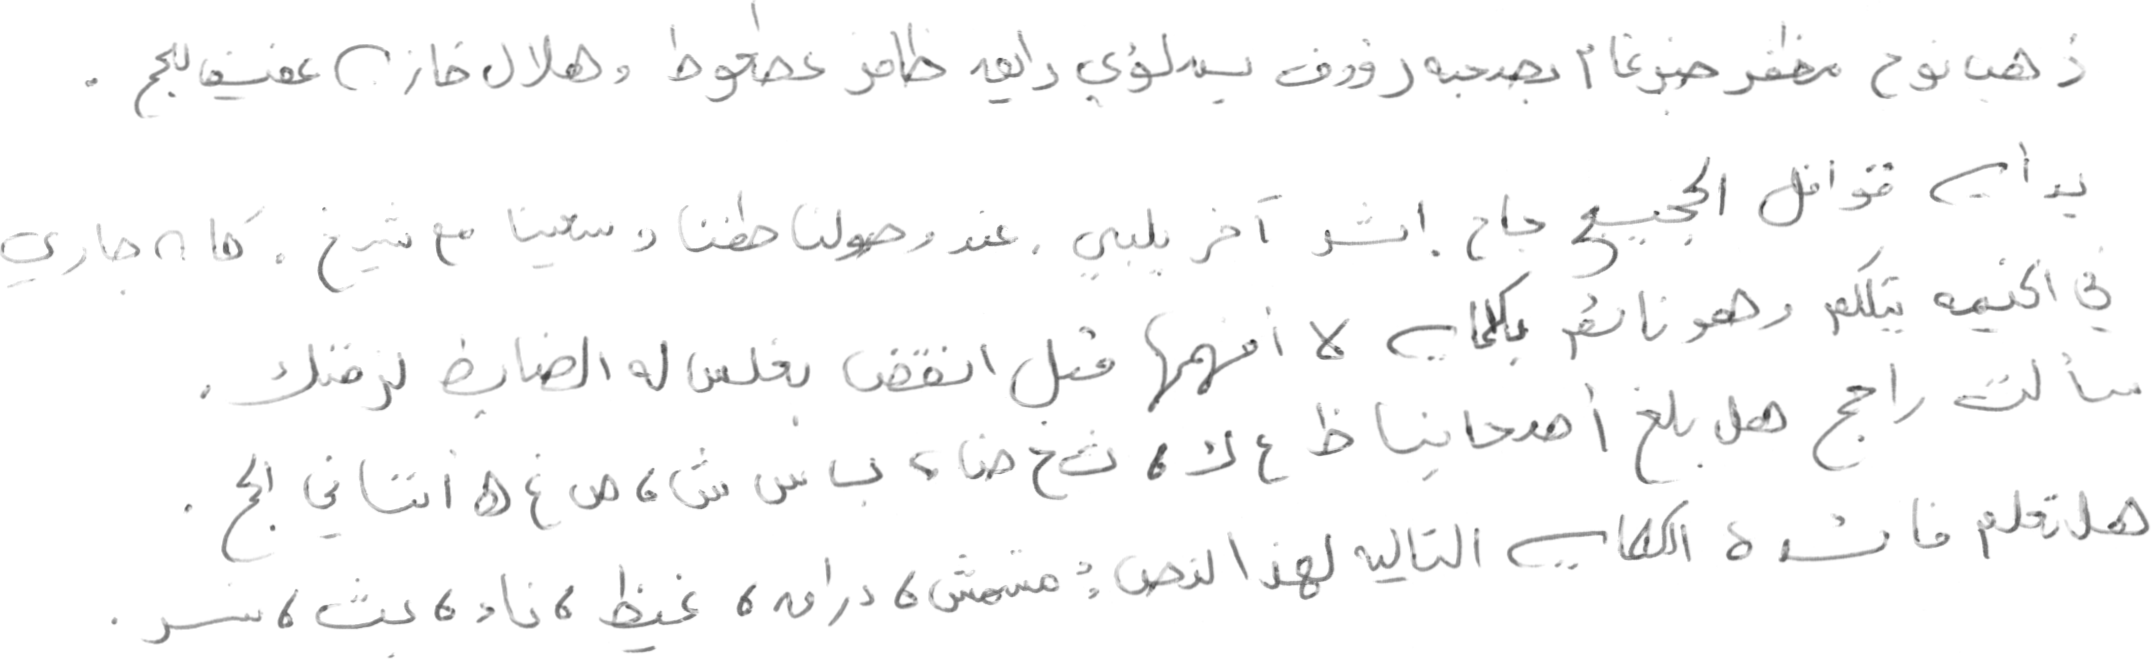 ذهب نوح مظفر ضرغام بصحبه رؤوف بسه لؤي رايق ظافر عطعوط وهلال خازن عفيف للحج .
بدأت قوافل الحجيج حاج إثر آخر يلبي . عند وصولنا طفنا وسعينا مع شيخ . كان جاري
في الخيمه يتكلم وهو نائم بكلمات لا أفهمها قبل انقض بغلس له الضابط لرفتك .
سألت راجح هل بلغ أصحابنا ظ ع ك ، ث خ ض ، ب س ش ، ص غ ه أثنا في الحج .
هل تعلم فائدة الكلمات التاليه لهذا النص : مشمش ، دراق ، غيظ ، ناء ، بث ، نسر .